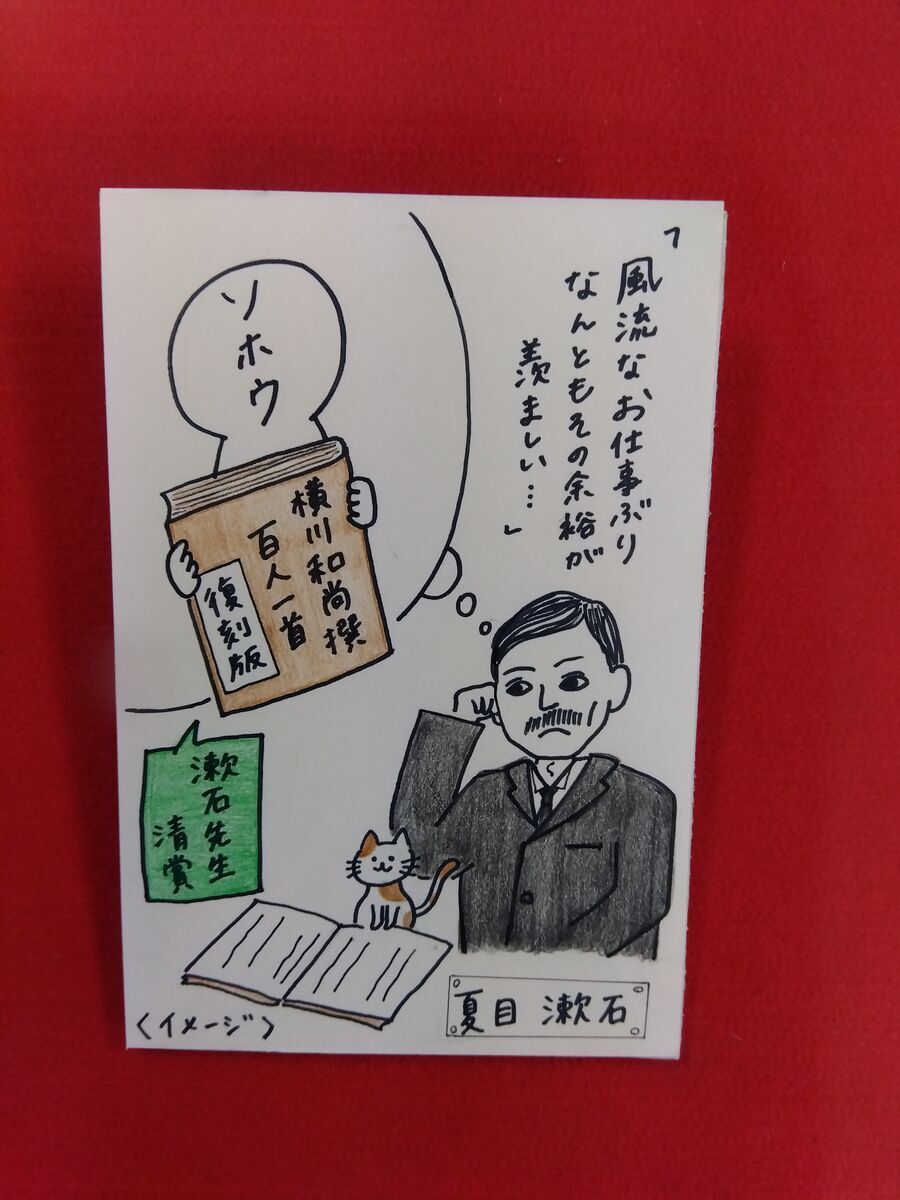 「風流なお仕事ぶり
なんともその余裕が
羨ましい…」
ソホウ
横川和尚撰
百人一首
復刻版
漱石先生
清賞
夏目 漱石
〈イメージ〉